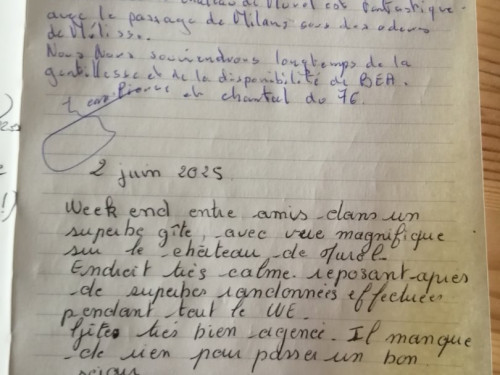 château de Murol est fantastique.
avec le passage de Milans sous des odeurs
de Mélisse.
Nous Nous souviendrons longtemps de la
gentillesse et de la disponibilité de BEA.
Pierre et chantal du 76.
2 juin 2025
Week end entre amis dans un
superbe gîte, avec vue magnifique
sur le château de Murol.
Endroit très calme reposant après
de superbes randonnées effectuées
pendant tout le WE.
Gîte très bien agencé. Il manque
de rien pour passer un bon
séjour